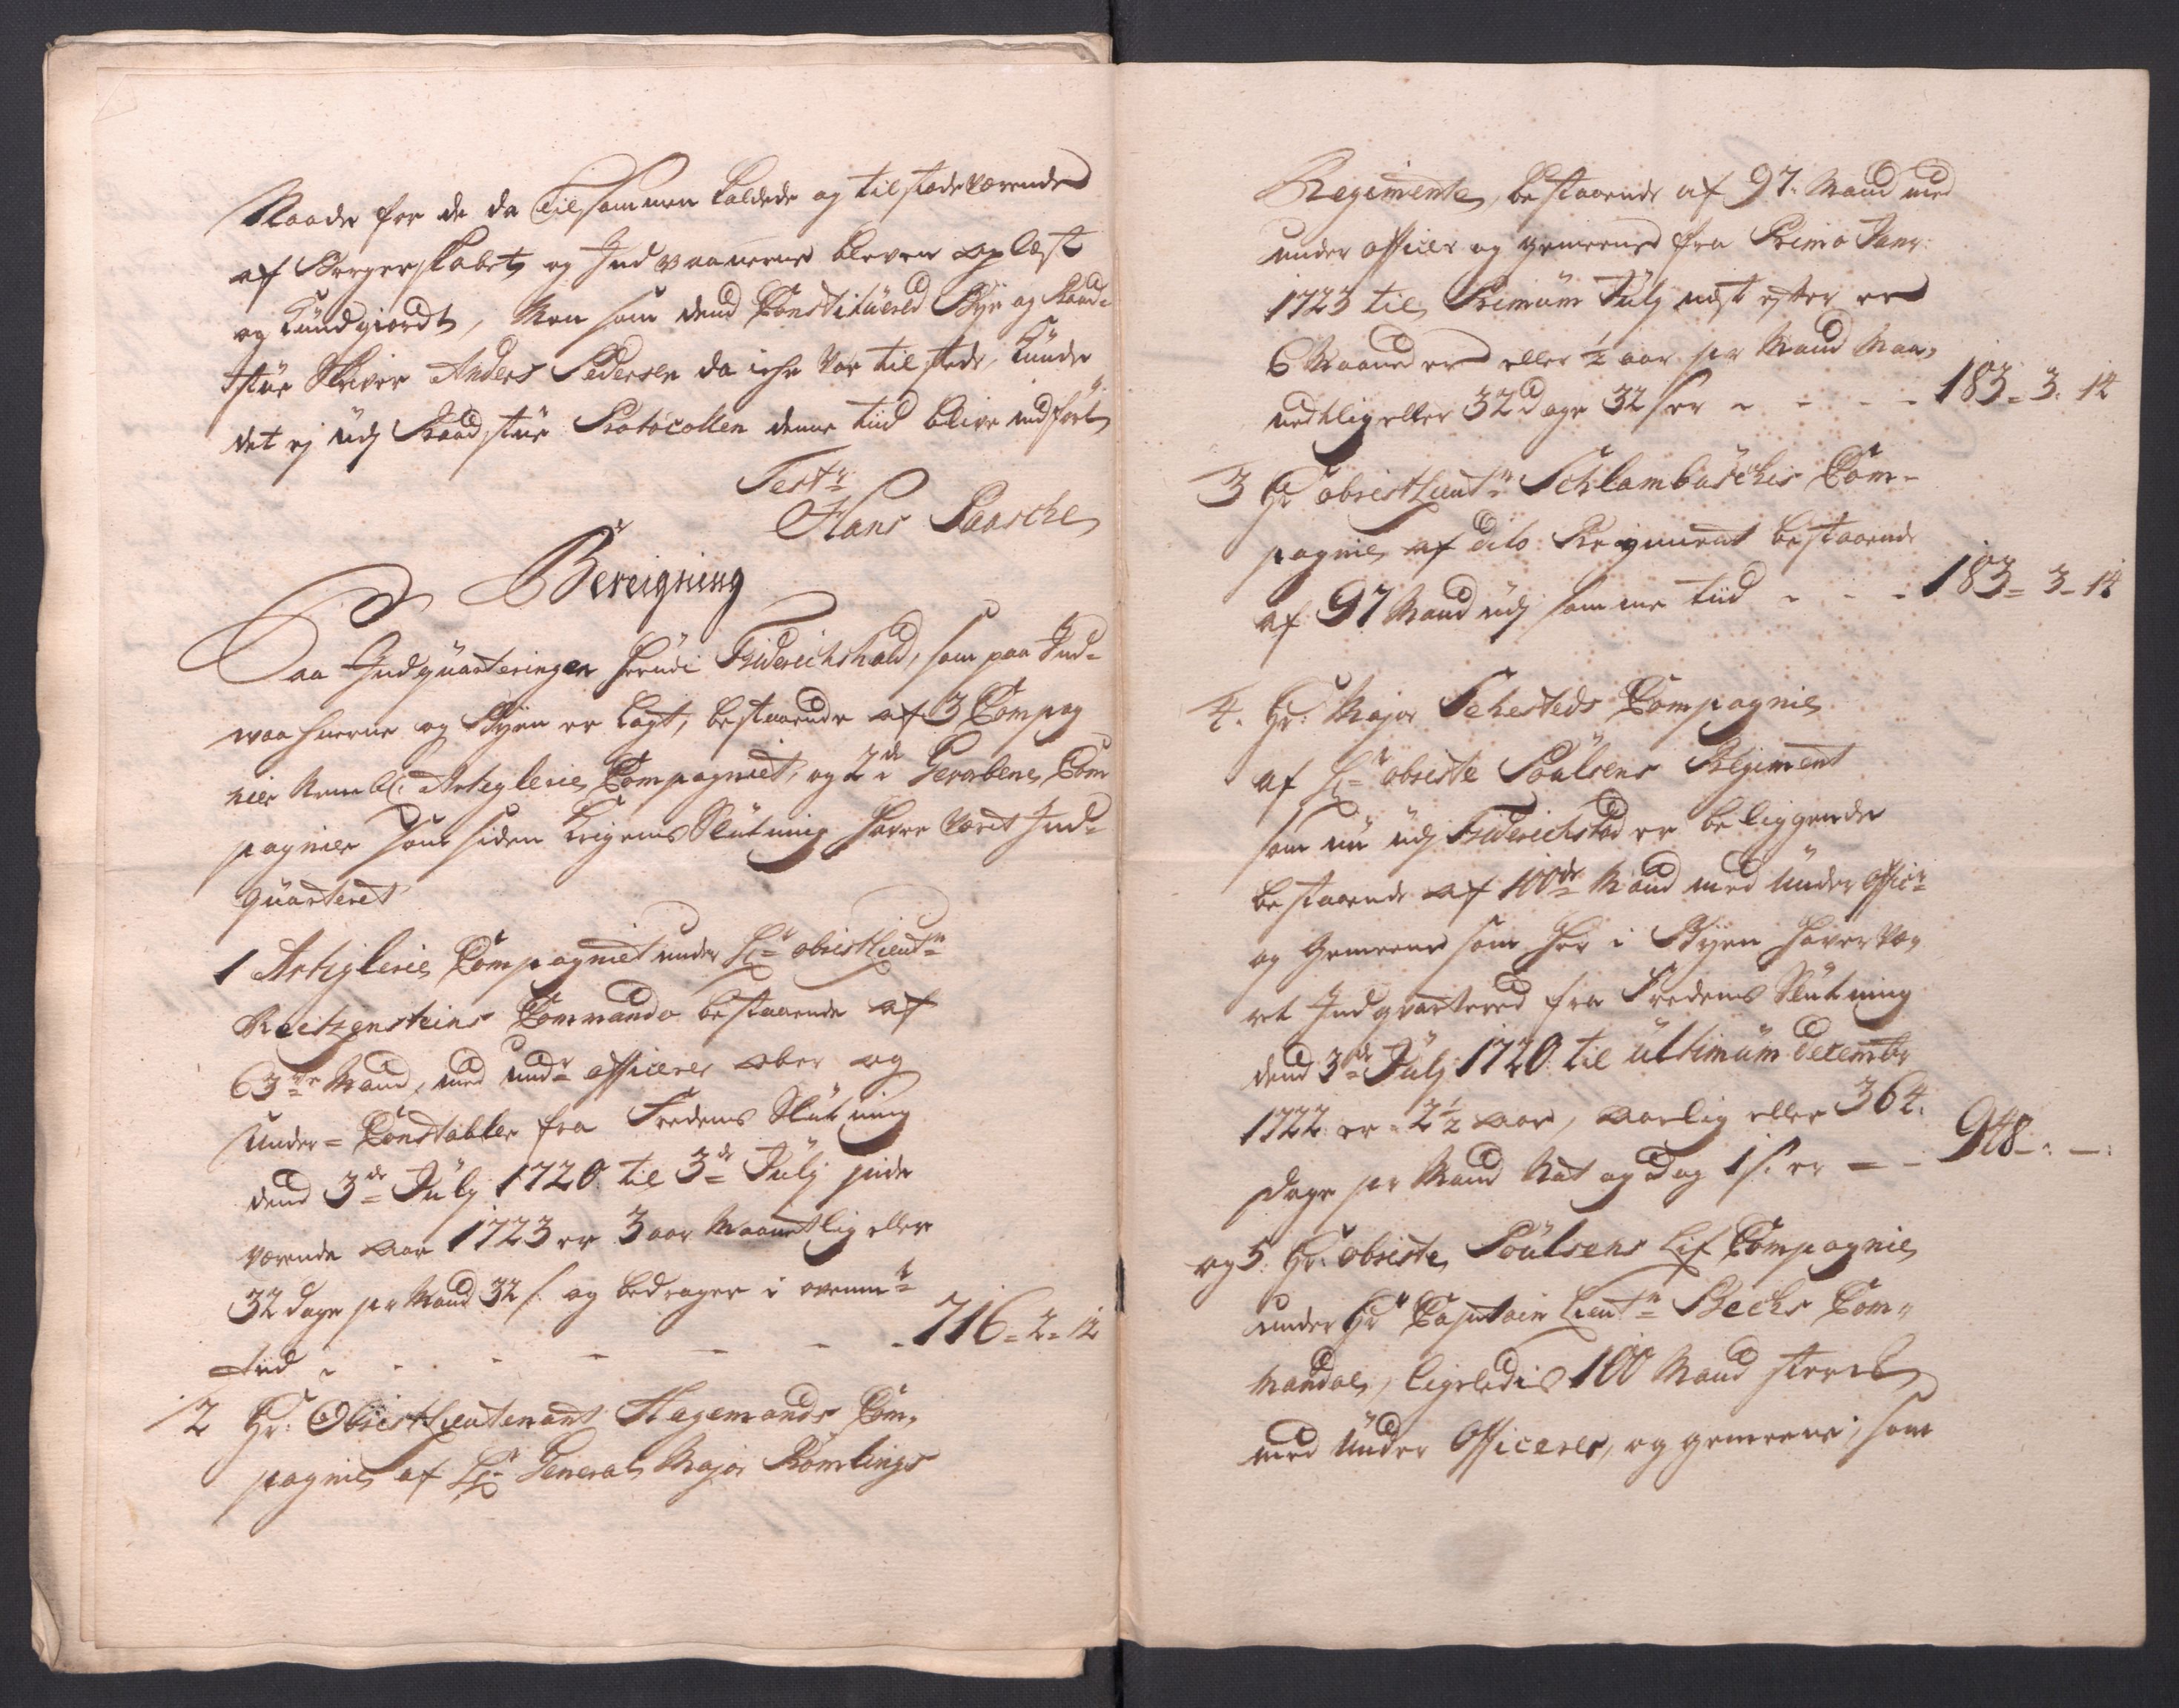 Maade for de da Tilsammen kaldede og tilstædeværende
af Borgerskabet og Indvaanerne bleven oplæst
og kundgiordt, Men som dend Constituered Bye og Raad-
stue Skriver Anders Pedersen da iche var tilstede, kunde
det ej udj Raadstue Protocollen denne tiid blive indført
Test:
Hans Paasche
Bereigning
Paa Indquarteringen herudi Friderichshald, som paa Ind-
vaanerne og Byen er lagt, bestaaende af 3 Compag
nier Nembl: Artiglerie Compagniet, og 2de Gevorbene Com
pagnier som siden Krigens Slutning haver været Ind-
quarteret
1 Artiglerie Compagniet under Hr obristLieutn
Reitzensteins Commando bestaaende af
63de Mand, med undr officerer ober og
Under-Constabler fra Fredens Slutning
dend 3de July 1720 til 3de July inde
værende aar 1723 er 3 aar Maanetlig eller
32 dage pr Mand 32 s. og bedrager i ovenmte
tiid - - - - - - 716-2-12
2 Hr: ObristLieutenant Hagemands Com-
pagnie af Hr General Major Römlings
Regimente, bestaaende af 97 Mand med
under officer og gemeene fra Primo Janr:
1723 til Primum July næst efter er
6 Maaneder eller ½ aar pr Mand Maa-
nedtlig eller 32 dage 32 s er - - - - 183-3-14
3 Hr obristLieutn Schlambusches Com-
pagnie af dito Regiment bestaaende
af 97 Mand udj samme tiid - - - 183-3-14
4. Hr: Major Sehesteds Compagnie
af Hr obriste Poulsens Regiment
som nu udj Friderichstad er beliggende
bestaaende af 100de Mand med Under Officr
og Gemeene som her i Byen haver væ-
ret Indqvartered fra Fredens Slutning
dend 3de July 1720 til ultimum decembr
1722 er 2½ aar, aarlig eller 364
dage pr Mand Nat og dag 1 s. er - - 948-:-:
og 5. Hr: obriste Poulsens Lif Compagnie
under Hr Capitain Lieutn Bechs Com-
mando, ligeledis 100 Mand sterck
med Under Officerer, og gemeene, som